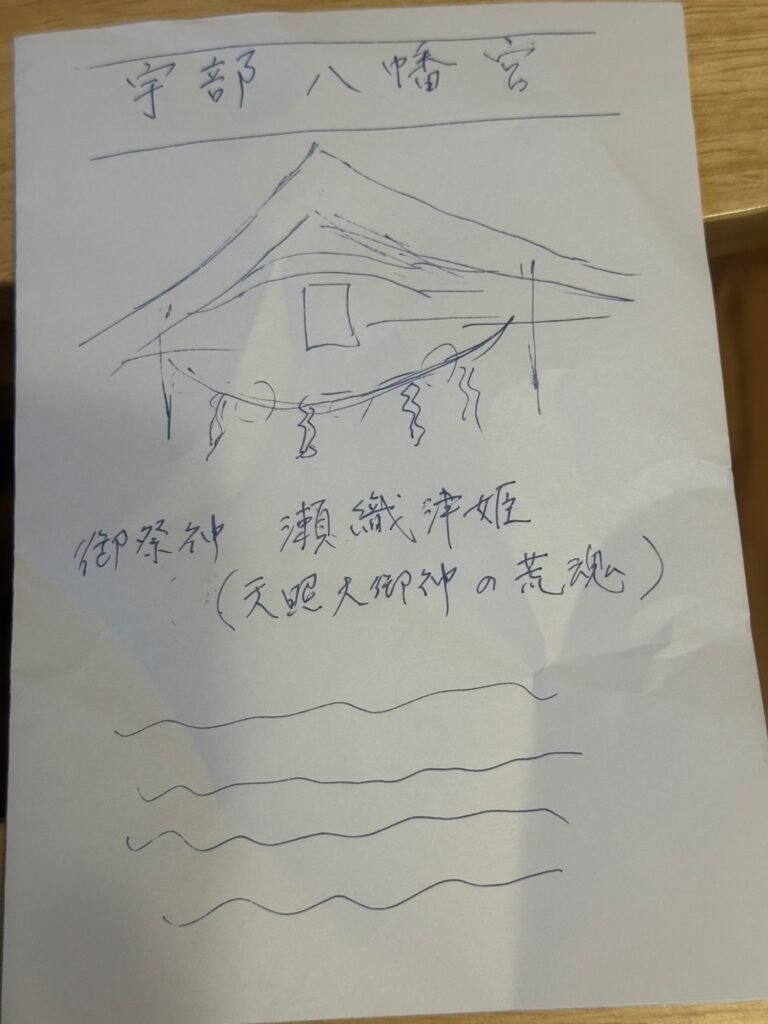 宇部八幡宮
御祭神 瀬織津姫
(天照大御神の荒魂)